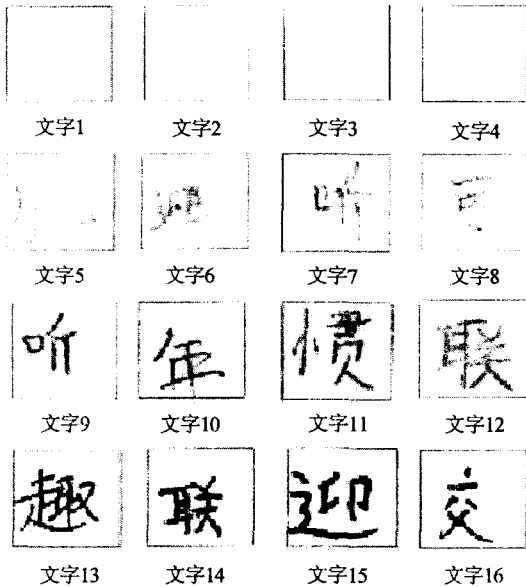 文字1 文字2 文字3 文字4
文字5 文字6 文字7 文字8
听 年 惯 联
文字9 文字10 文字11 文字12
趣 联 迎 交
文字13 文字14 文字15 文字16